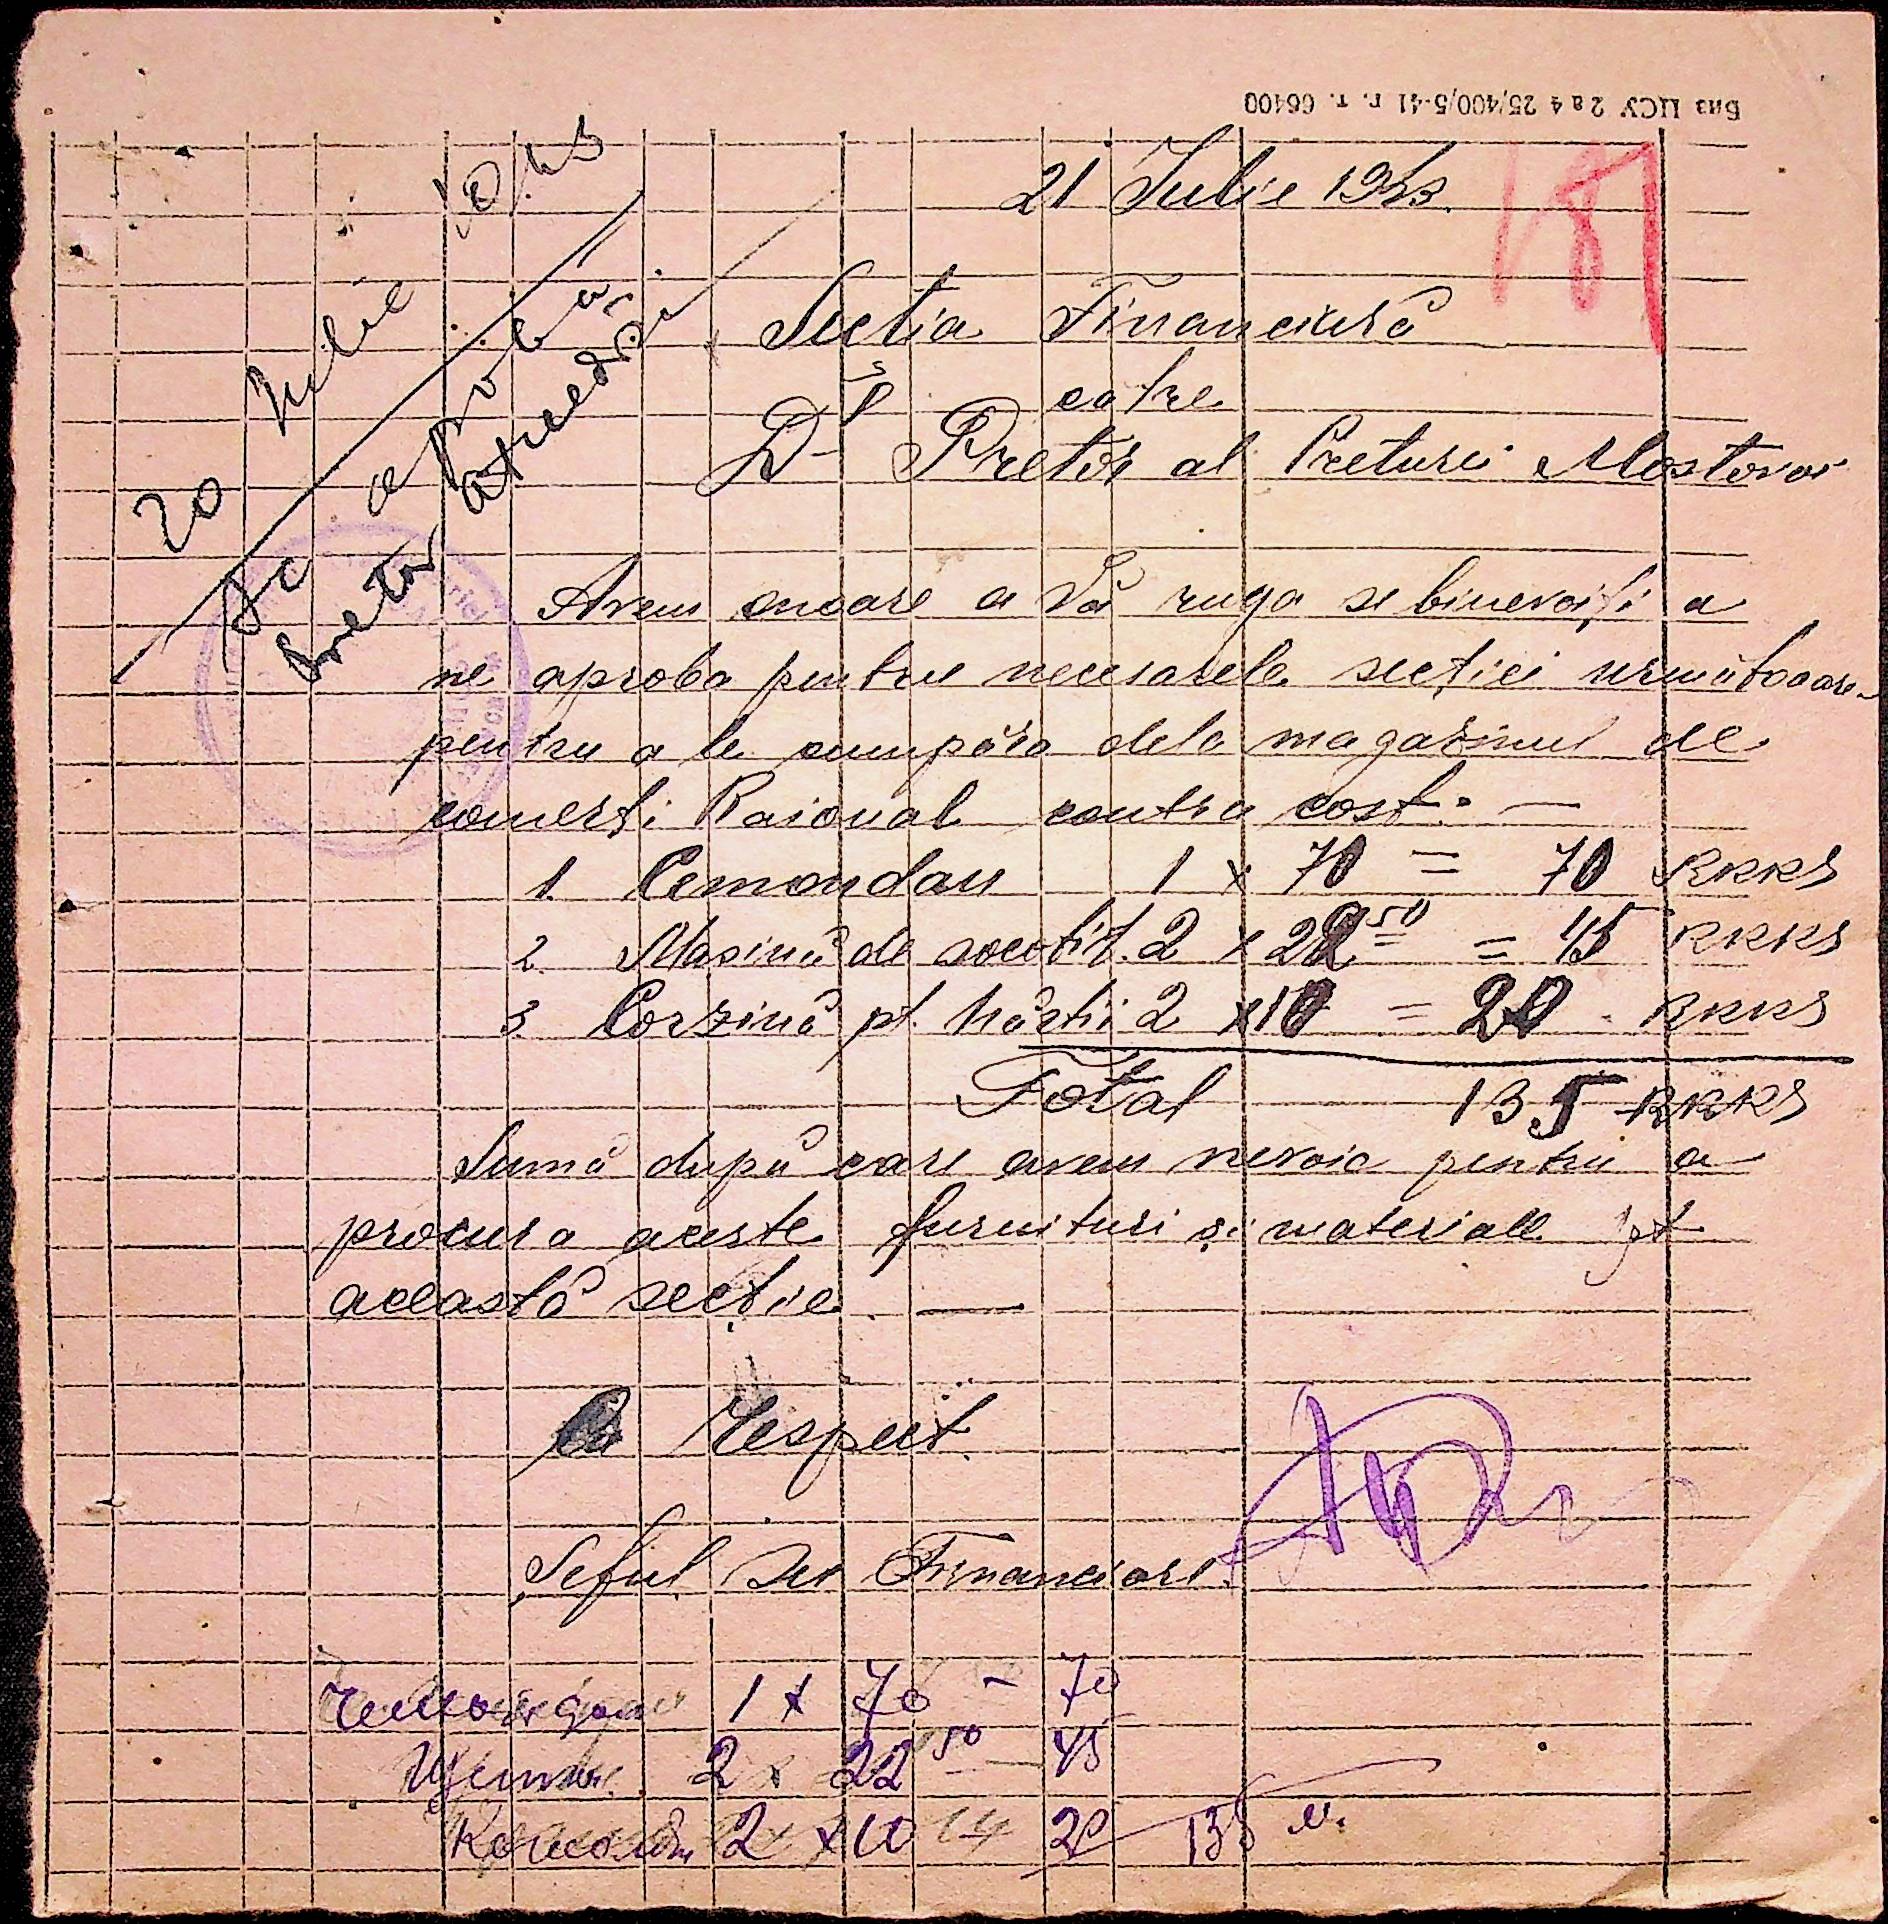 Биз ЦСУ 2 в 4 25/400/5-41 г. т. 66400
21 Iulie 1943.
187
20 Iulie 1943
Se aprobă
Pretor
Sectia Financiară
catre
Dl Pretor al Preturei Mostovoi
Avem onoare a Vă ruga se binevoiți a
ne aproba pentru necesarele secției următooare
pentru a le cumpăra dela magazinul de
comerti Raional contra cost. —
1. Cemondan 1 x 70 = 70 RKKS
2. Masină de socotit. 2 x 22 50 = 45 RKKS
3. Corzină pt. hârtii 2 x 10 = 20 RKKS
Total 135 RKKS
Sumă după care avem nevoie pentru a
procura aceste furnituri și materiale pt
această secție. —
Cu Respect.
Șeful Sec Financiare.
Чемондан 1 x 70 - 70
2 x 22 50 - 45
2 x 10 20 135 м.